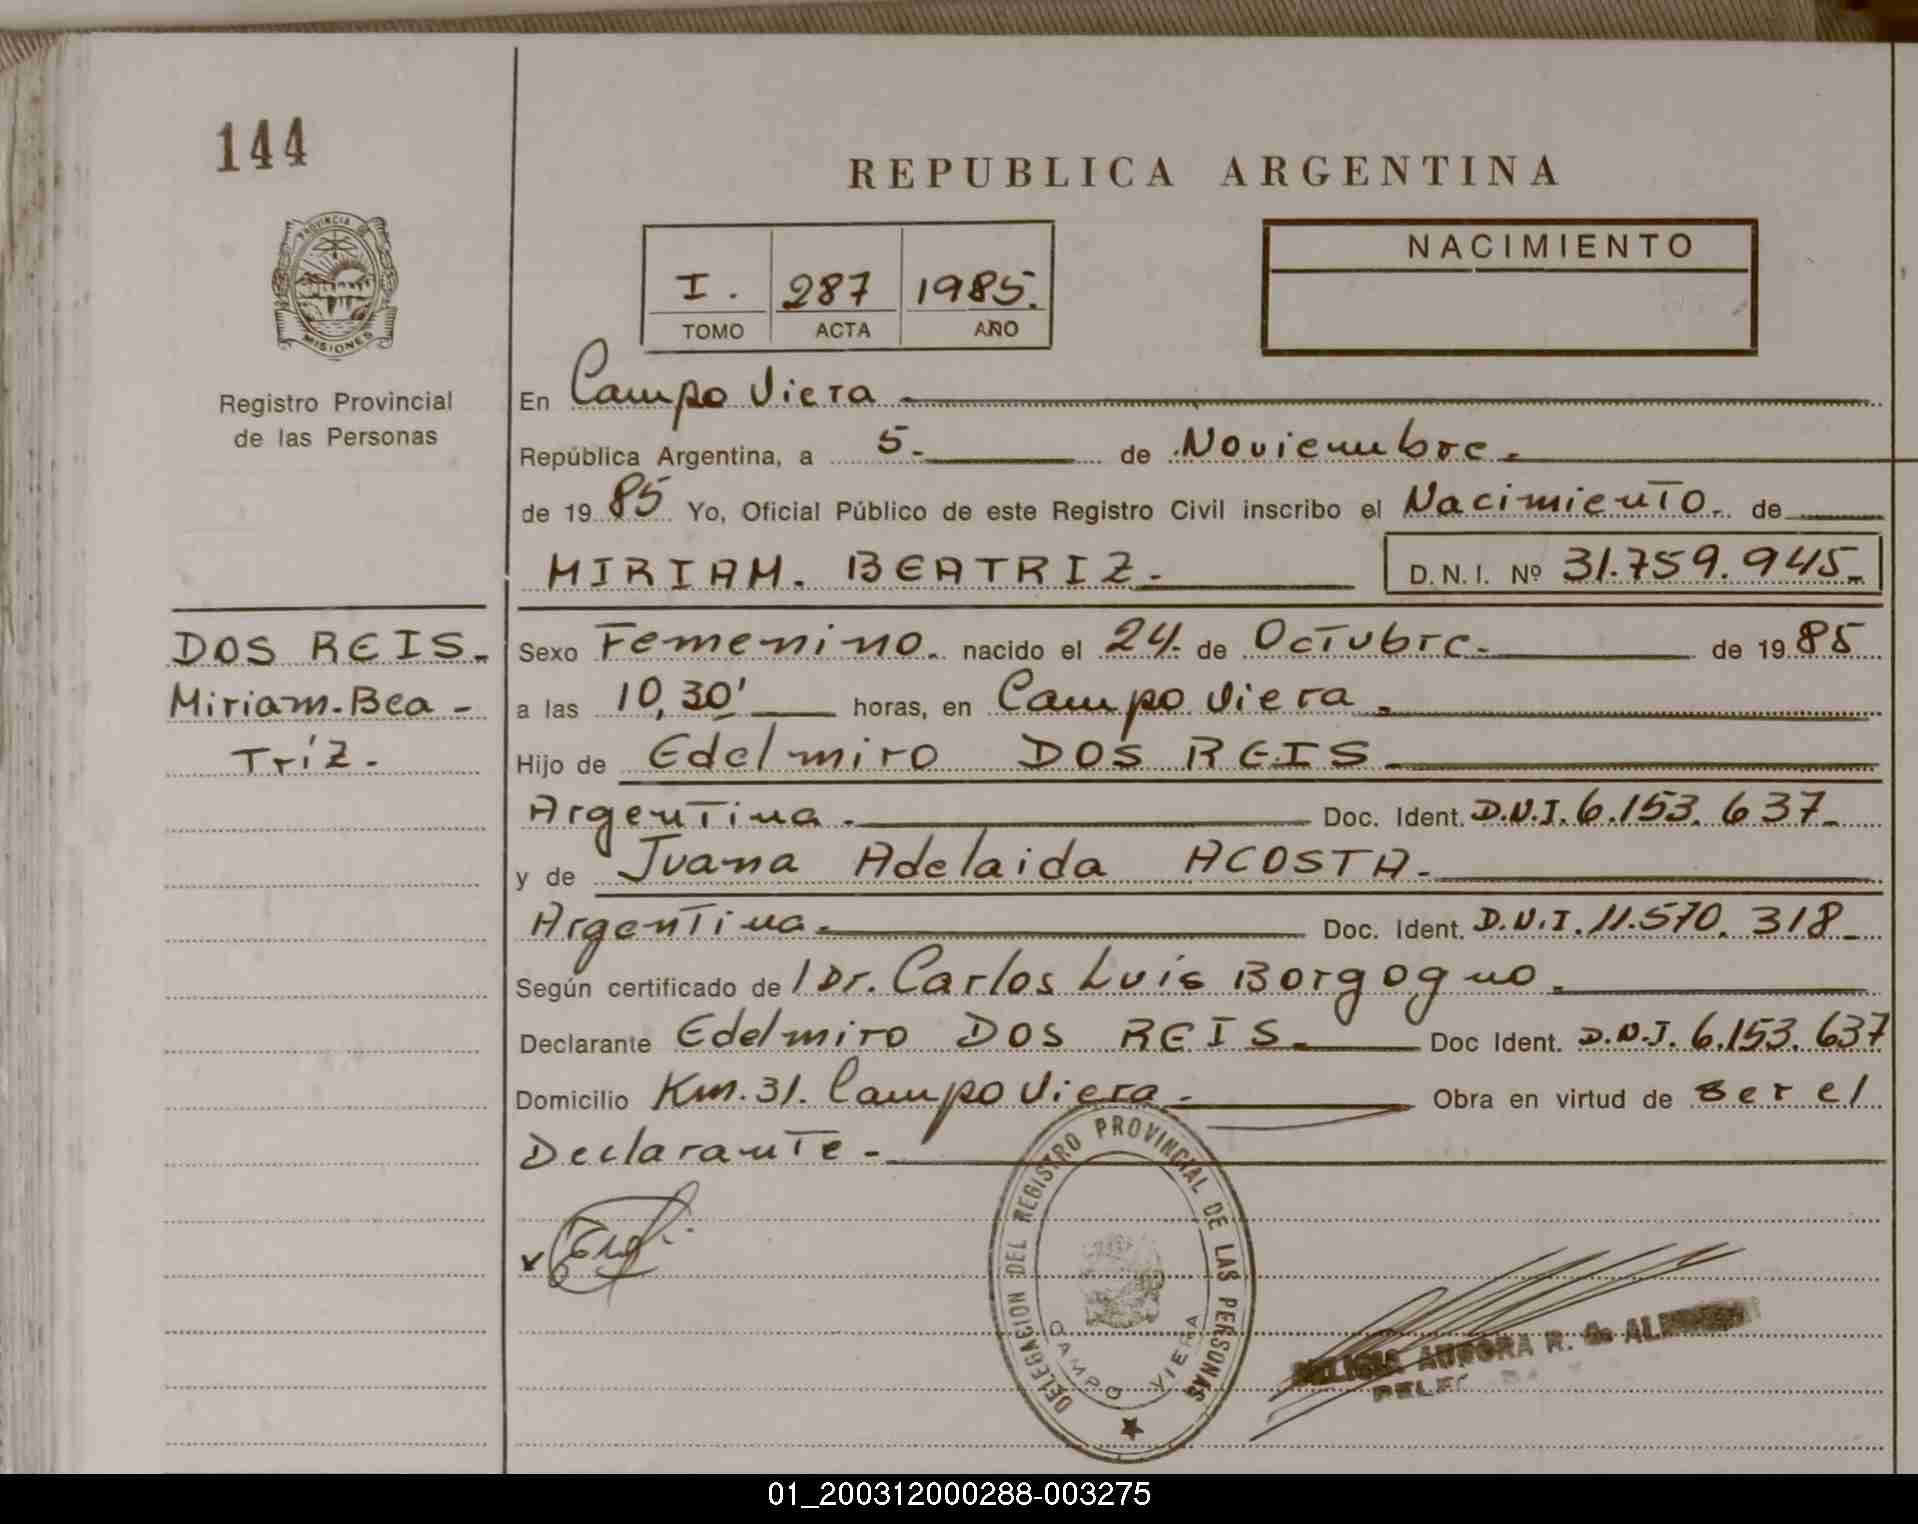 144
PROVINCIA DE
MISIONES
Registro Provincial
de las Personas
DOS REIS.-
Miriam-Bea-
Tríz.-
REPUBLICA ARGENTINA
I. 287 1985.
TOMO ACTA AÑO
NACIMIENTO
En Campo Viera
República Argentina, a 5.- de Noviembre.
de 1985 Yo, Oficial Público de este Registro Civil inscribo el Nacimiento.. de
MIRIAM. BEATRIZ.- D.N.I. Nº 31.759.945.-
Sexo Femenino.. nacido el 24. de Octubre.- de 1985
a las 10,30' horas, en Campo Viera.
Hijo de Edelmiro DOS REIS.
Argentina.- Doc. Ident. D.N.I. 6.153.637.-
y de Juana Adelaida ACOSTA.-
Argentina.- Doc. Ident. D.N.I. 11.570.318.-
Según certificado de l Dr. Carlos Luis Borgogno.
Declarante Edelmiro DOS REIS.- Doc Ident. D.N.I. 6.153.637
Domicilio Km.31. Campo Viera.- Obra en virtud de ser el
Declarante.-
DELEGACION DEL REGISTRO PROVINCIAL DE LAS PERSONAS
CAMPO VIERA
AURORA R.
01_200312000288-003275